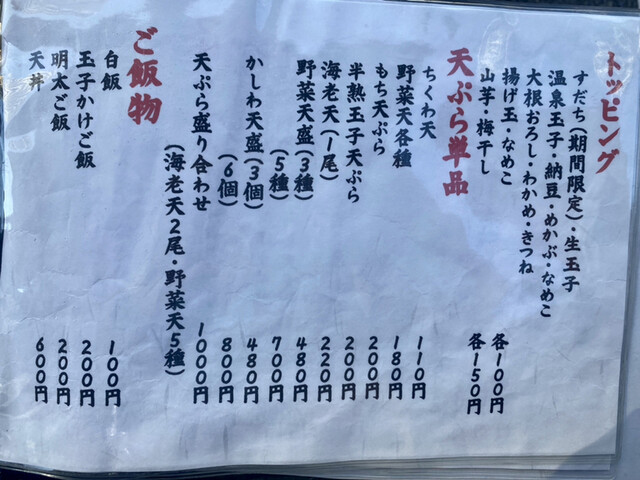 トッピング
すだち(期間限定)・生玉子
温泉玉子・納豆・めかぶ・なめこ
大根おろし・わかめ・きつね
揚げ玉・なめこ 各100円
山芋・梅干し 各150円
天ぷら単品
ちくわ天 110円
野菜天各種 180円
もち天ぷら 200円
半熟玉子天ぷら 200円
海老天(1尾) 220円
野菜天盛(3種) 480円
(5種) 700円
かしわ天盛(3個) 480円
(6個) 800円
天ぷら盛り合わせ 1000円
(海老天2尾・野菜天5種)
ご飯物
白飯 100円
玉子かけご飯 200円
明太ご飯 200円
天丼 600円